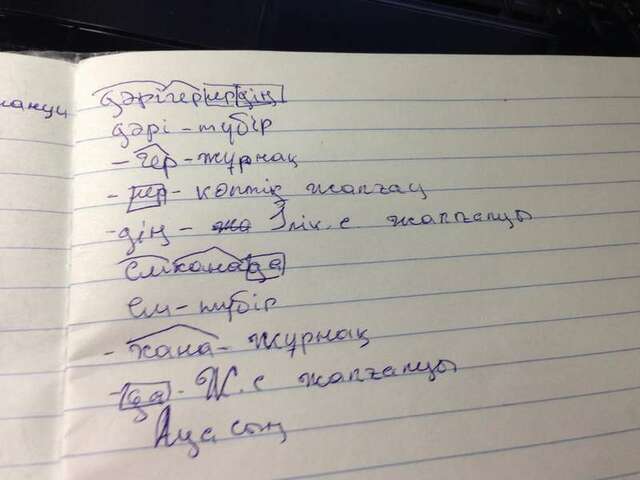 дәрігерлердің
дәрі - түбір
- гер - жұрнақ
- лер - көптік жалғау
- дің - 3 лік.с жалғаулы
емханада
ем - түбір
- хана - жұрнақ
- да - Ж.с жалғаулы